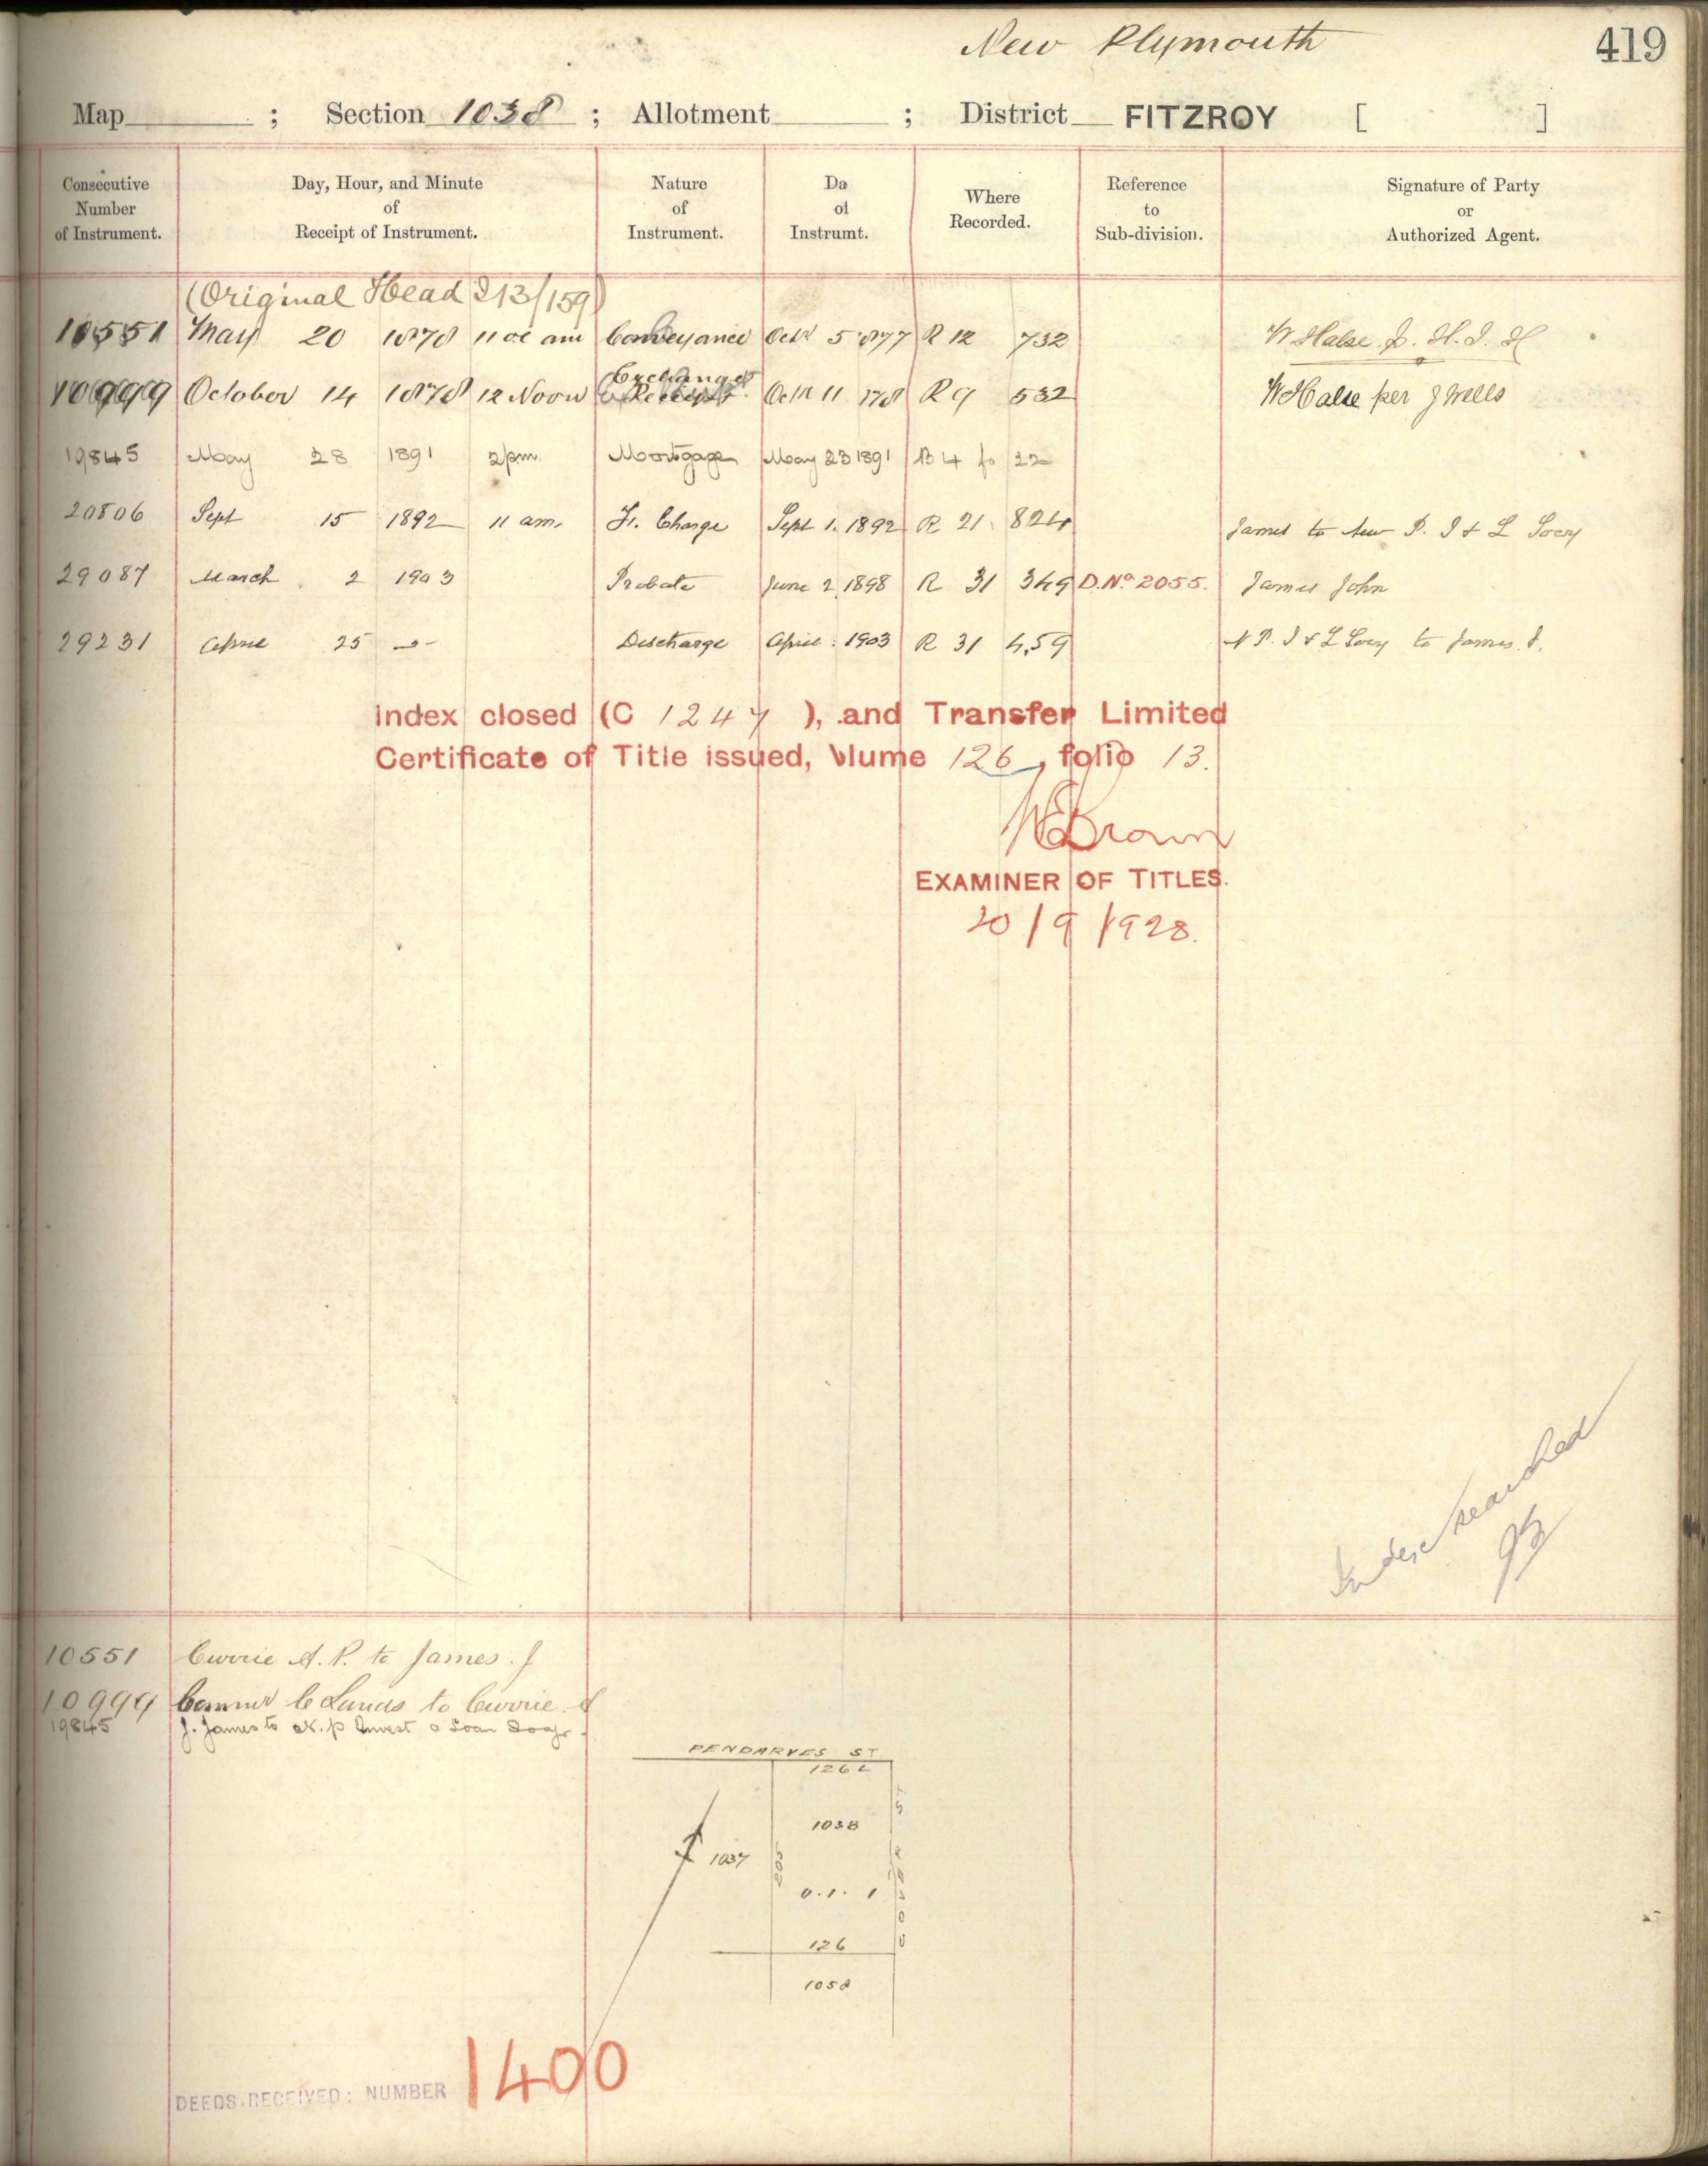 New Plymouth
419
Map ; Section 1038 ; Allotment ; District FITZROY [ ]
Consecutive Number of Instrument.
Day, Hour, and Minute of Receipt of Instrument.
Nature of Instrument.
Da of Instrumt.
Where Recorded.
Reference to Sub-division.
Signature of Party or Authorized Agent.
(Original Head 213/159)
10551 May 20 1878 11 oc am Conveyance Octr 5 1877 R 12 732 W Halse
10999 October 14 1878 12 Noon Exchange Receipt Octr 11 178 R 9 532 W Halse per J Wells
19845 May 28 1891 2 pm. Mortgage May 23 1891 B 4 fo 22
20806 Sept 15 1892 11 am. F. Charge Sept 1. 1892 R 21 824 James to New P. I & L Socy
29087 March 2 1903 Probate June 2, 1898 R 31 349 D. No 2055. James John
29231 April 25 -"- Discharge April : 1903 R 31 459 N P. I & L Socy to James. J.
Index closed (C 1247 ), and Transfer Limited
Certificate of Title issued, Vlume 126, folio 13.
WEBrown
EXAMINER OF TITLES.
20/9/1928.
Index searched
10551 Currie A. P. to James. J
10999 Commr C Lands to Currie
19845 J. James to N. P Invest & Loan Socy
PENDARVES ST
126 L
1038
1037
205
0. 1. 1
126
1058
GOVER ST
DEEDS RECEIVED: NUMBER 1400